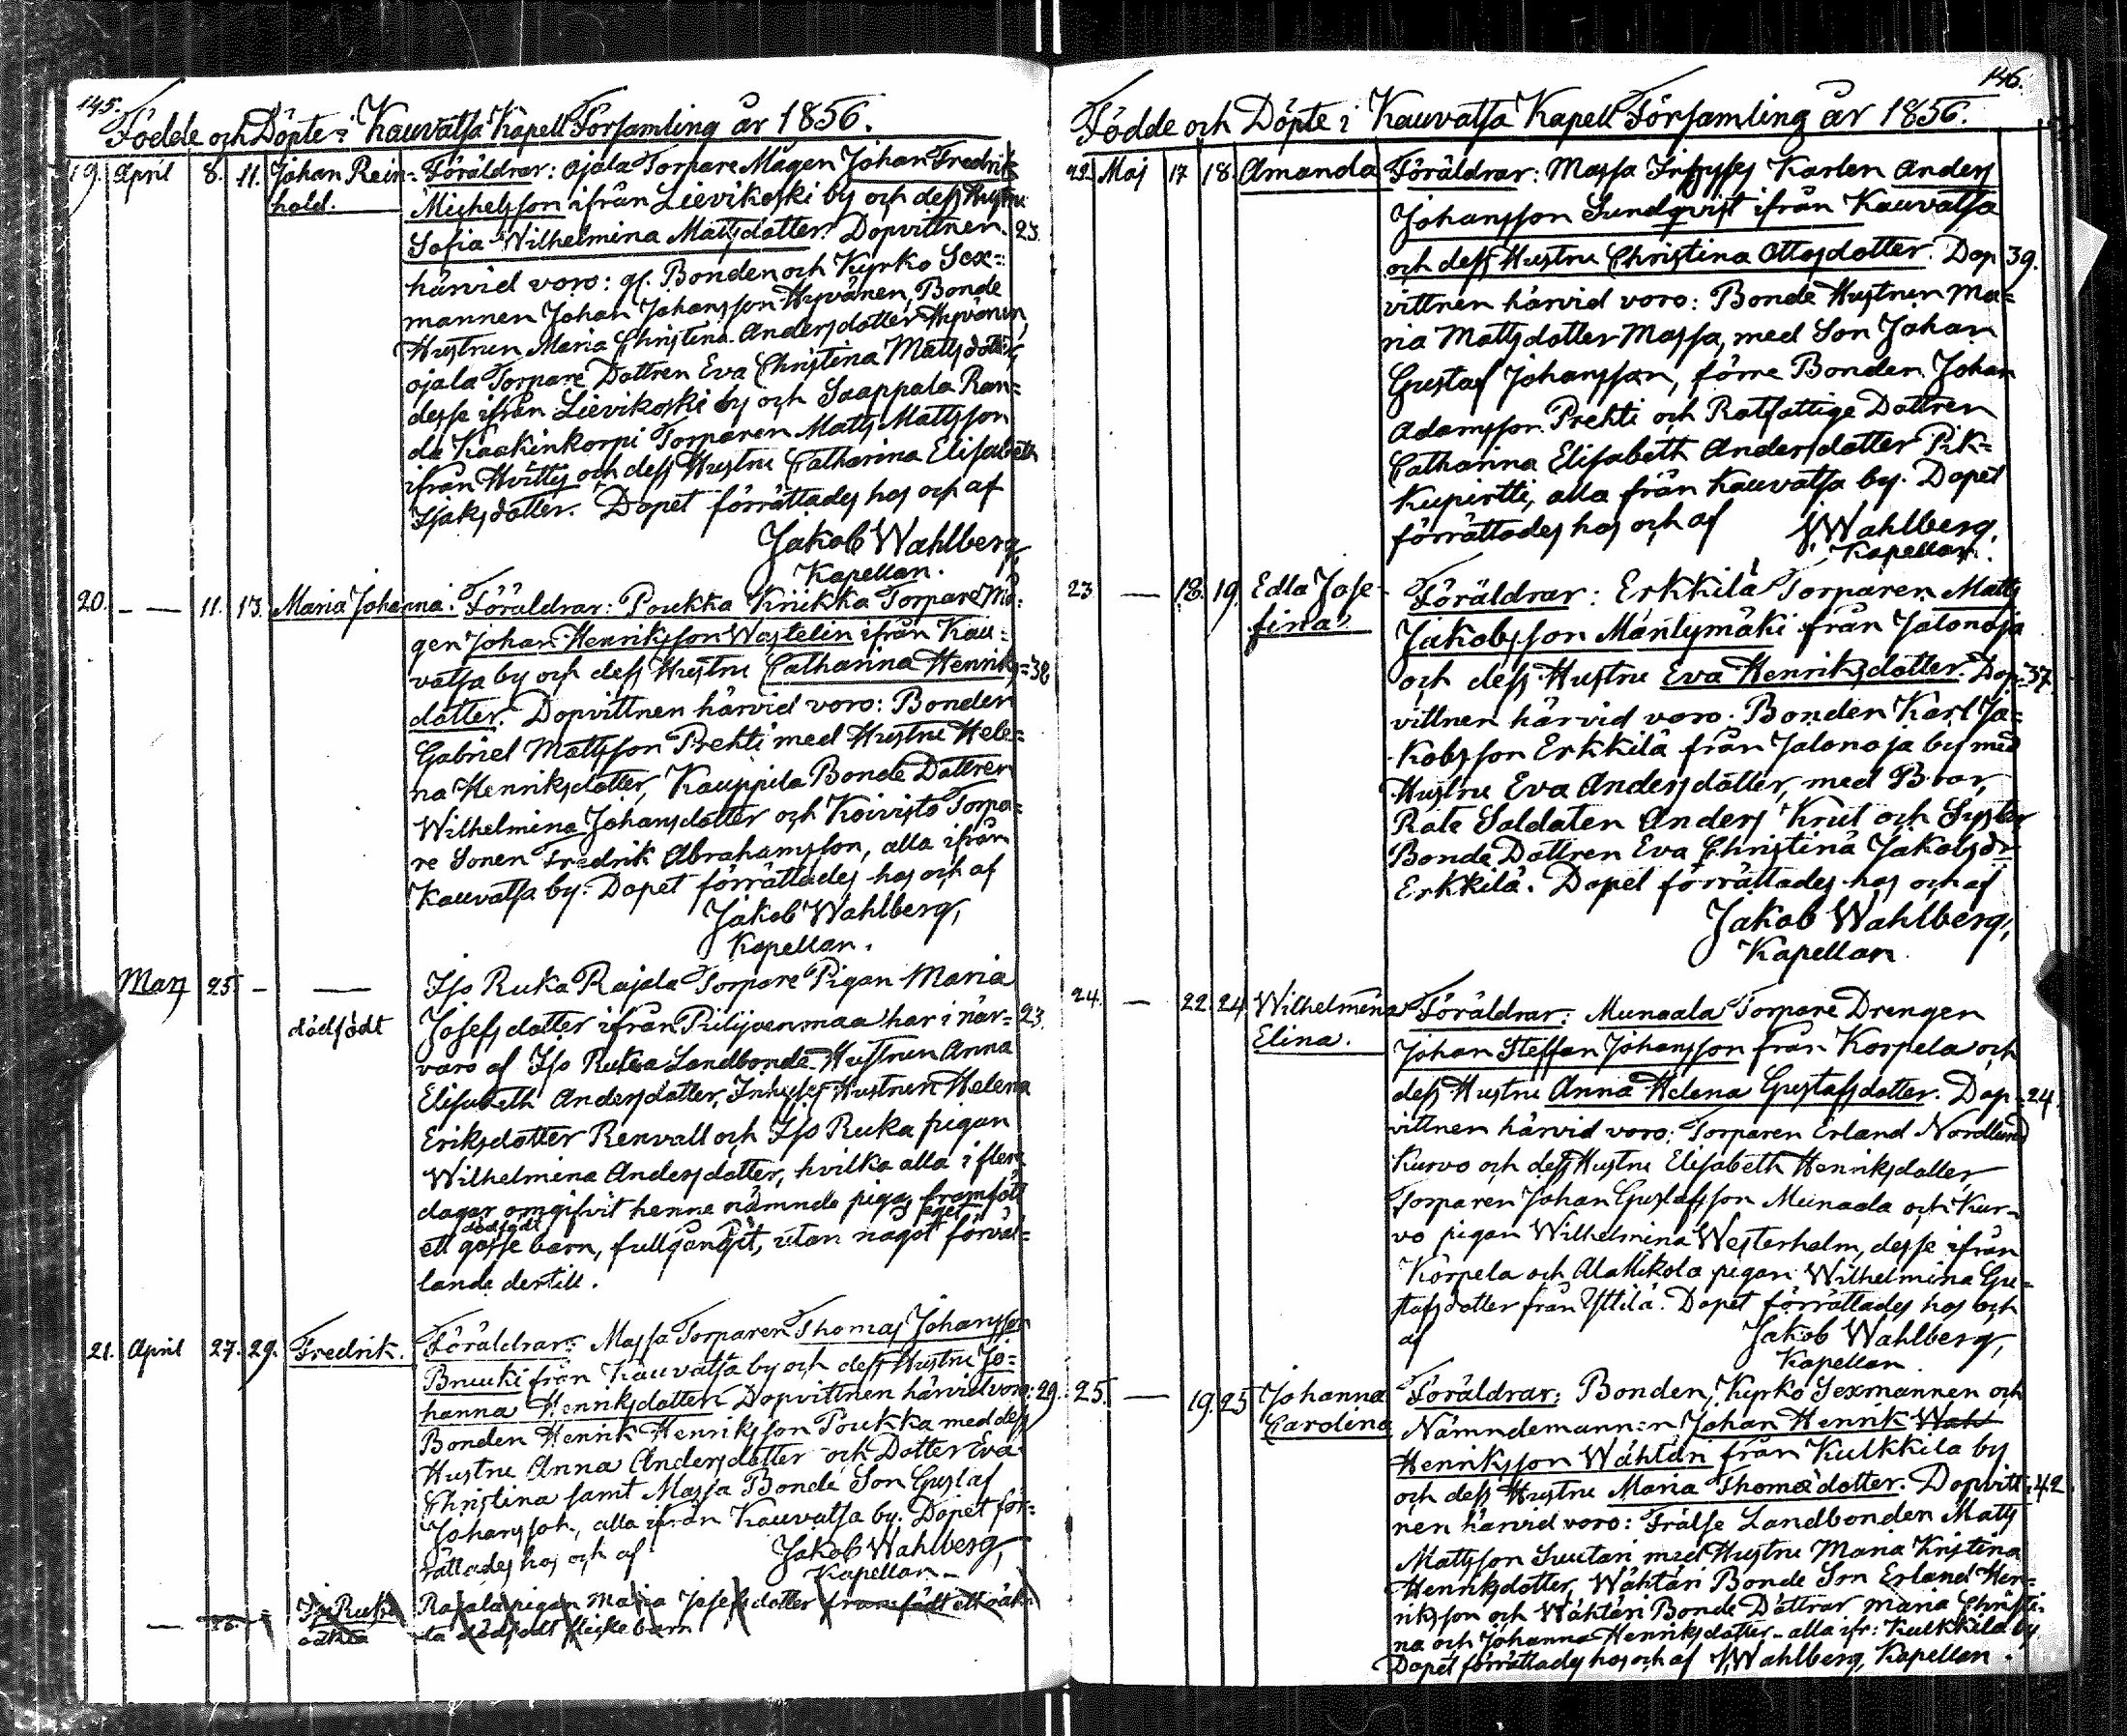 145.
Födde och Döpte i Kauvatsa Kapell Församling år 1856.
19. April 8. 11. Johan Rein= Föräldrar: Ojala Torpare Mågen Johan Fredrik
hold. Michelsson ifrån Lievikoski by och dess Hustru
Sofia Wilhelmina Mattsdotter. Dopvittnen 23.
härvid voro: gl. Bonden och Kyrko Sex=
mannen Johan Johansson Hyvänen, Bonde
Hustrun Maria Christina Andersdotter Hyvönen,
Ojala Torpare Dottren Eva Christina Mattsdotter,
desse ifrån Lievikoski by och Saappala Ran=
da Kaakinkorpi Torparen Matts Mattsson
ifrån Hvittis och dess Hustru Catharina Elisabeth
Isjaksdotter. Dopet förrättades hos och af
Jakob Wahlberg,
Kapellan.
20. — — 11. 13. Maria Johanna. Föräldrar: Poukka Kriikka Torpare Må=
gen Johan Henriksson Wastelin ifrån Kau=
vatsa by och dess Hustru Catharina Henriks= 38
dotter. Dopvittnen härvid voro: Bonden
Gabriel Mattsson Prehti med Hustru Hele=
na Henriksdotter, Kauppila Bonde Dottren
Wilhelmina Johansdotter och Koivisto Torpa=
re Sonen Fredrik Abrahamsson, alla ifrån
Kauvatsa by. Dopet förrättades hos och af
Jakob Wahlberg,
Kapellan.
Mars 25 — — Iso Ruka Rajala Torpare Pigan Maria
dödfödt Josefsdotter ifrån Piilijoenmaa har i när= 23.
varo af Iso Ruka Landbonde Hustrun Anna
Elisabeth Andersdotter, Inhyses Hustrun Helena
Eriksdotter Renvall och Iso Ruka pigan
Wilhelmina Andersdotter, hvilka alla i flere
dagar omgifvit henne nämnde pigas framfödt
dödfödt eget
ett gosse barn, fullgånget, utan något förvål=
lande dertill.
21. April 27. 29. Fredrik. Föräldrar: Massa Torparen Thomas Johansson
Bruuki från Kauvatsa by och dess Hustru Jo=
hanna Henriksdotter. Dopvittnen härvid voro: 29.
Bonden Henrik Henriksson Poukka med dess
Hustru Anna Andersdotter och Dotter Eva
Christina samt Massa Bonde Son Gustaf
Johansson, alla ifrån Kauvatsa by. Dopet för=
rättades hos och af Jakob Wahlberg,
Kapellan.
— Iso Ruka Rajala pigan Maria Josefsdotter framfödt ett oäk=
oäkta ta dödfödt flickebarn
146.
Födde och Döpte i Kauvatsa Kapell Församling år 1856.
22. Maj 17 18. Amanda Föräldrar: Massa Inhyses Karlen Anders
Johansson Sundqvist ifrån Kauvatsa
och dess Hustru Christina Ottosdotter. Dop 39.
vittnen härvid voro: Bonde Hustrun Ma=
ria Mattsdotter Massa, med Son Johan
Gustaf Johansson, förre Bonden Johan
Adamsson Prehti och Rotfattige Dottren
Catharina Elisabeth Andersdotter Pik=
kupirtti, alla från Kauvatsa by. Dopet
förrättades hos och af JWahlberg,
Kapellan.
23. — 18. 19. Edla Jose- Föräldrar: Erkkilä Torparen Matts
fina. Jakobsson Mäntymäki från Jalonoja
och dess Hustru Eva Henriksdotter. Dop= 37.
vittnen härvid voro. Bonden Karl Ja=
kobsson Erkkilä från Jalonoja by med
Hustru Eva Andersdotter, med Bror,
Rote Soldaten Anders Krut och Syster
Bonde Dottren Eva Christina Jakobsdr
Erkkilä. Dopet förrättades hos och af
Jakob Wahlberg,
Kapellan.
24. — 22. 24. Wilhelmina Föräldrar: Munaala Torpare Drengen
Elina. Johan Steffan Johansson från Korpela och
dess Hustru Anna Helena Gustafsdotter. Dop= 24.
vittnen härvid voro: Torparen Erland Nordlund
Kurvo och dess Hustru Elisabeth Henriksdotter
Torparen Johan Gustafsson Munaala och Kur=
vo pigan Wilhelmina Westerholm, desse ifrån
Korpela och AlaMikola pigan Wilhelmina Gu=
stafsdotter från Yttilä. Dopet förrättades hos och
af Jakob Wahlberg,
Kapellan.
25. — 19. 25 Johanna Föräldrar: Bonden, Kyrko Sexmannen och
Carolina Nämndemannen Johan Henrik Wäh
Henriksson Wähtäri från Kulkkila by
och dess Hustru Maria Thomasdotter. Dopvitt= 42.
nen härvid voro: Frälse Landbonden Matts
Mattsson Suutari med Hustru Maria Kristina
Henriksdotter, Wähtäri Bonde Son Erland Hen=
riksson och Wähtäri Bonde Döttrar Maria Christi=
na och Johanna Henriksdotter - alla ifr: Kulkkila by.
Dopet förrättades hos och af JWahlberg, Kapellan.